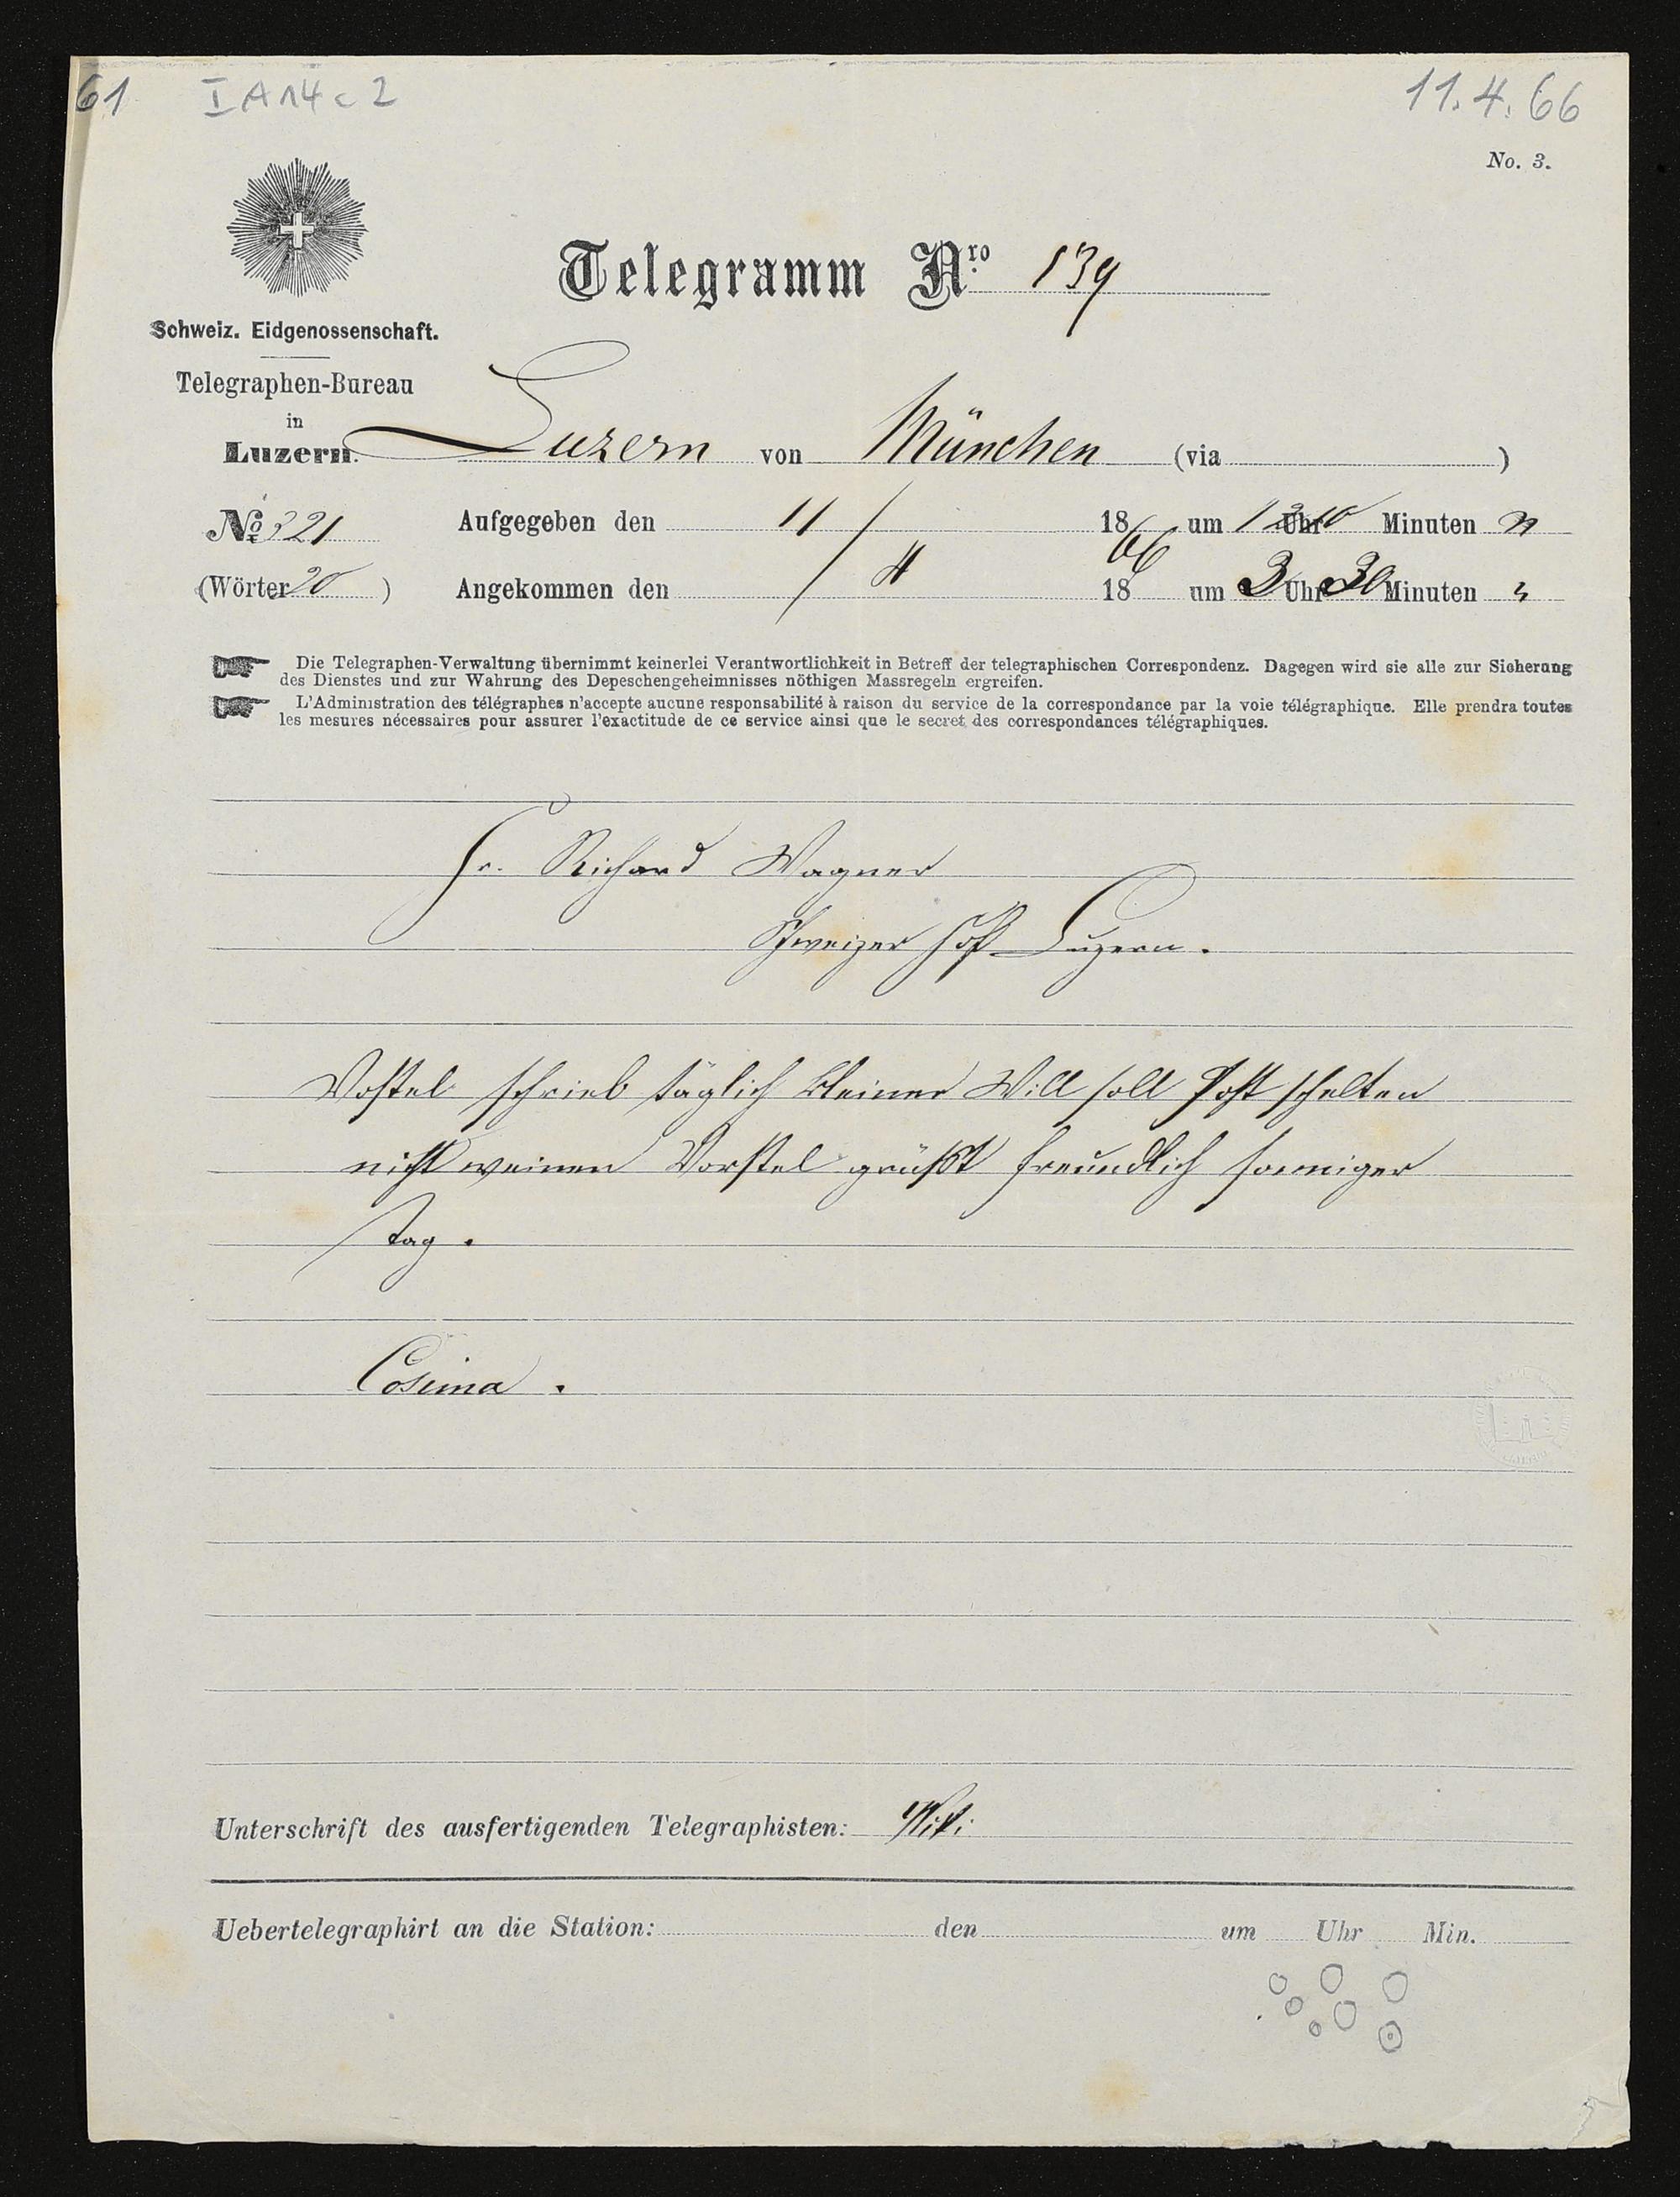 61 I A 14 c 2 11.4.66
No. 3.
Telegramm Nro. 139
Schweiz. Eidgenossenschaft.
Telegraphen-Bureau
in
Luzern.
Luzern von München (via )
No 321 Aufgegeben den 11/ 1866 um 12 Uhr 10 Minuten n
(Wörter 20 ) Angekommen den /4 18 um 3 Uhr 30 Minuten "
Die Telegraphen-Verwaltung übernimmt keinerlei Verantwortlichkeit in Betreff der telegraphischen Correspondenz. Dagegen wird sie alle zur Sicherung
des Dienstes und zur Wahrung des Depeschengeheimnisses nöthigen Massregeln ergreifen.
L'Administration des télégraphes n'accepte aucune responsabilité à raison du service de la correspondance par la voie télégraphique. Elle prendra toutes
les mesures nécessaires pour assurer l'exactitude de ce service ainsi que le secret des correspondances télégraphiques.
Hr. Richard Wagner
Schweizer Hof Luzern.
Vostel schrieb täglich kleiner Will soll Post schelten
nicht weinen Vorstel grüßt freundlich sonniger
Tag.
Cosima.
Unterschrift des ausfertigenden Telegraphisten:
Uebertelegraphirt an die Station: den um Uhr Min.